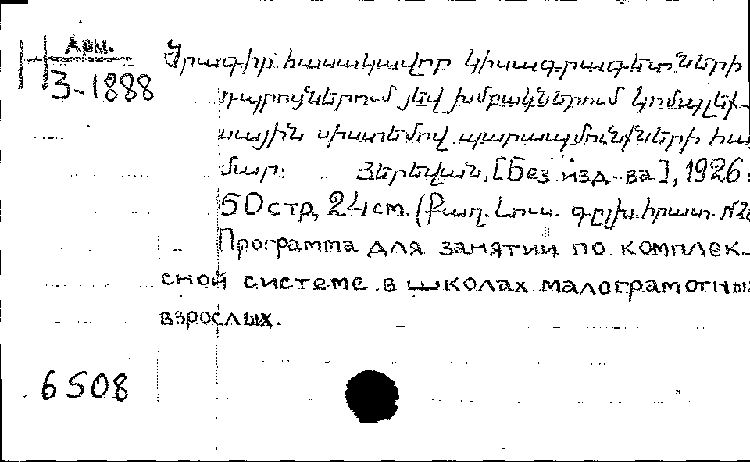 Арм.
Ծրագիր հասակավոր կիսագրագետների
3-1888
դպրոցներում յեվ խմբակներում կոմպլեք-
սային սիստեմով պարապմունքների հա-
մար. Յերեվան, [Без изд-ва], 1926.
50 стр, 24 см. (Քաղ. Լուս. գլխ. հրատ. №2
Программа для занятий по комплек-
сной системе в школах малограмотны
взрослых.
6508